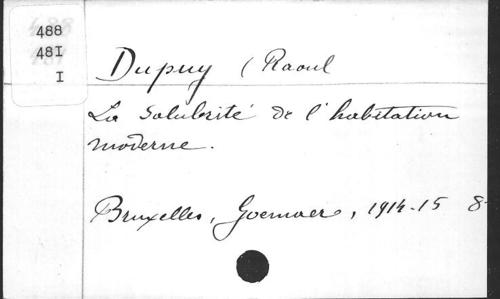 488
481
I
Dupuy (Raoul
La salubrité de l'habitation
moderne.
Bruxelles, Goemaere, 1914-15 8-